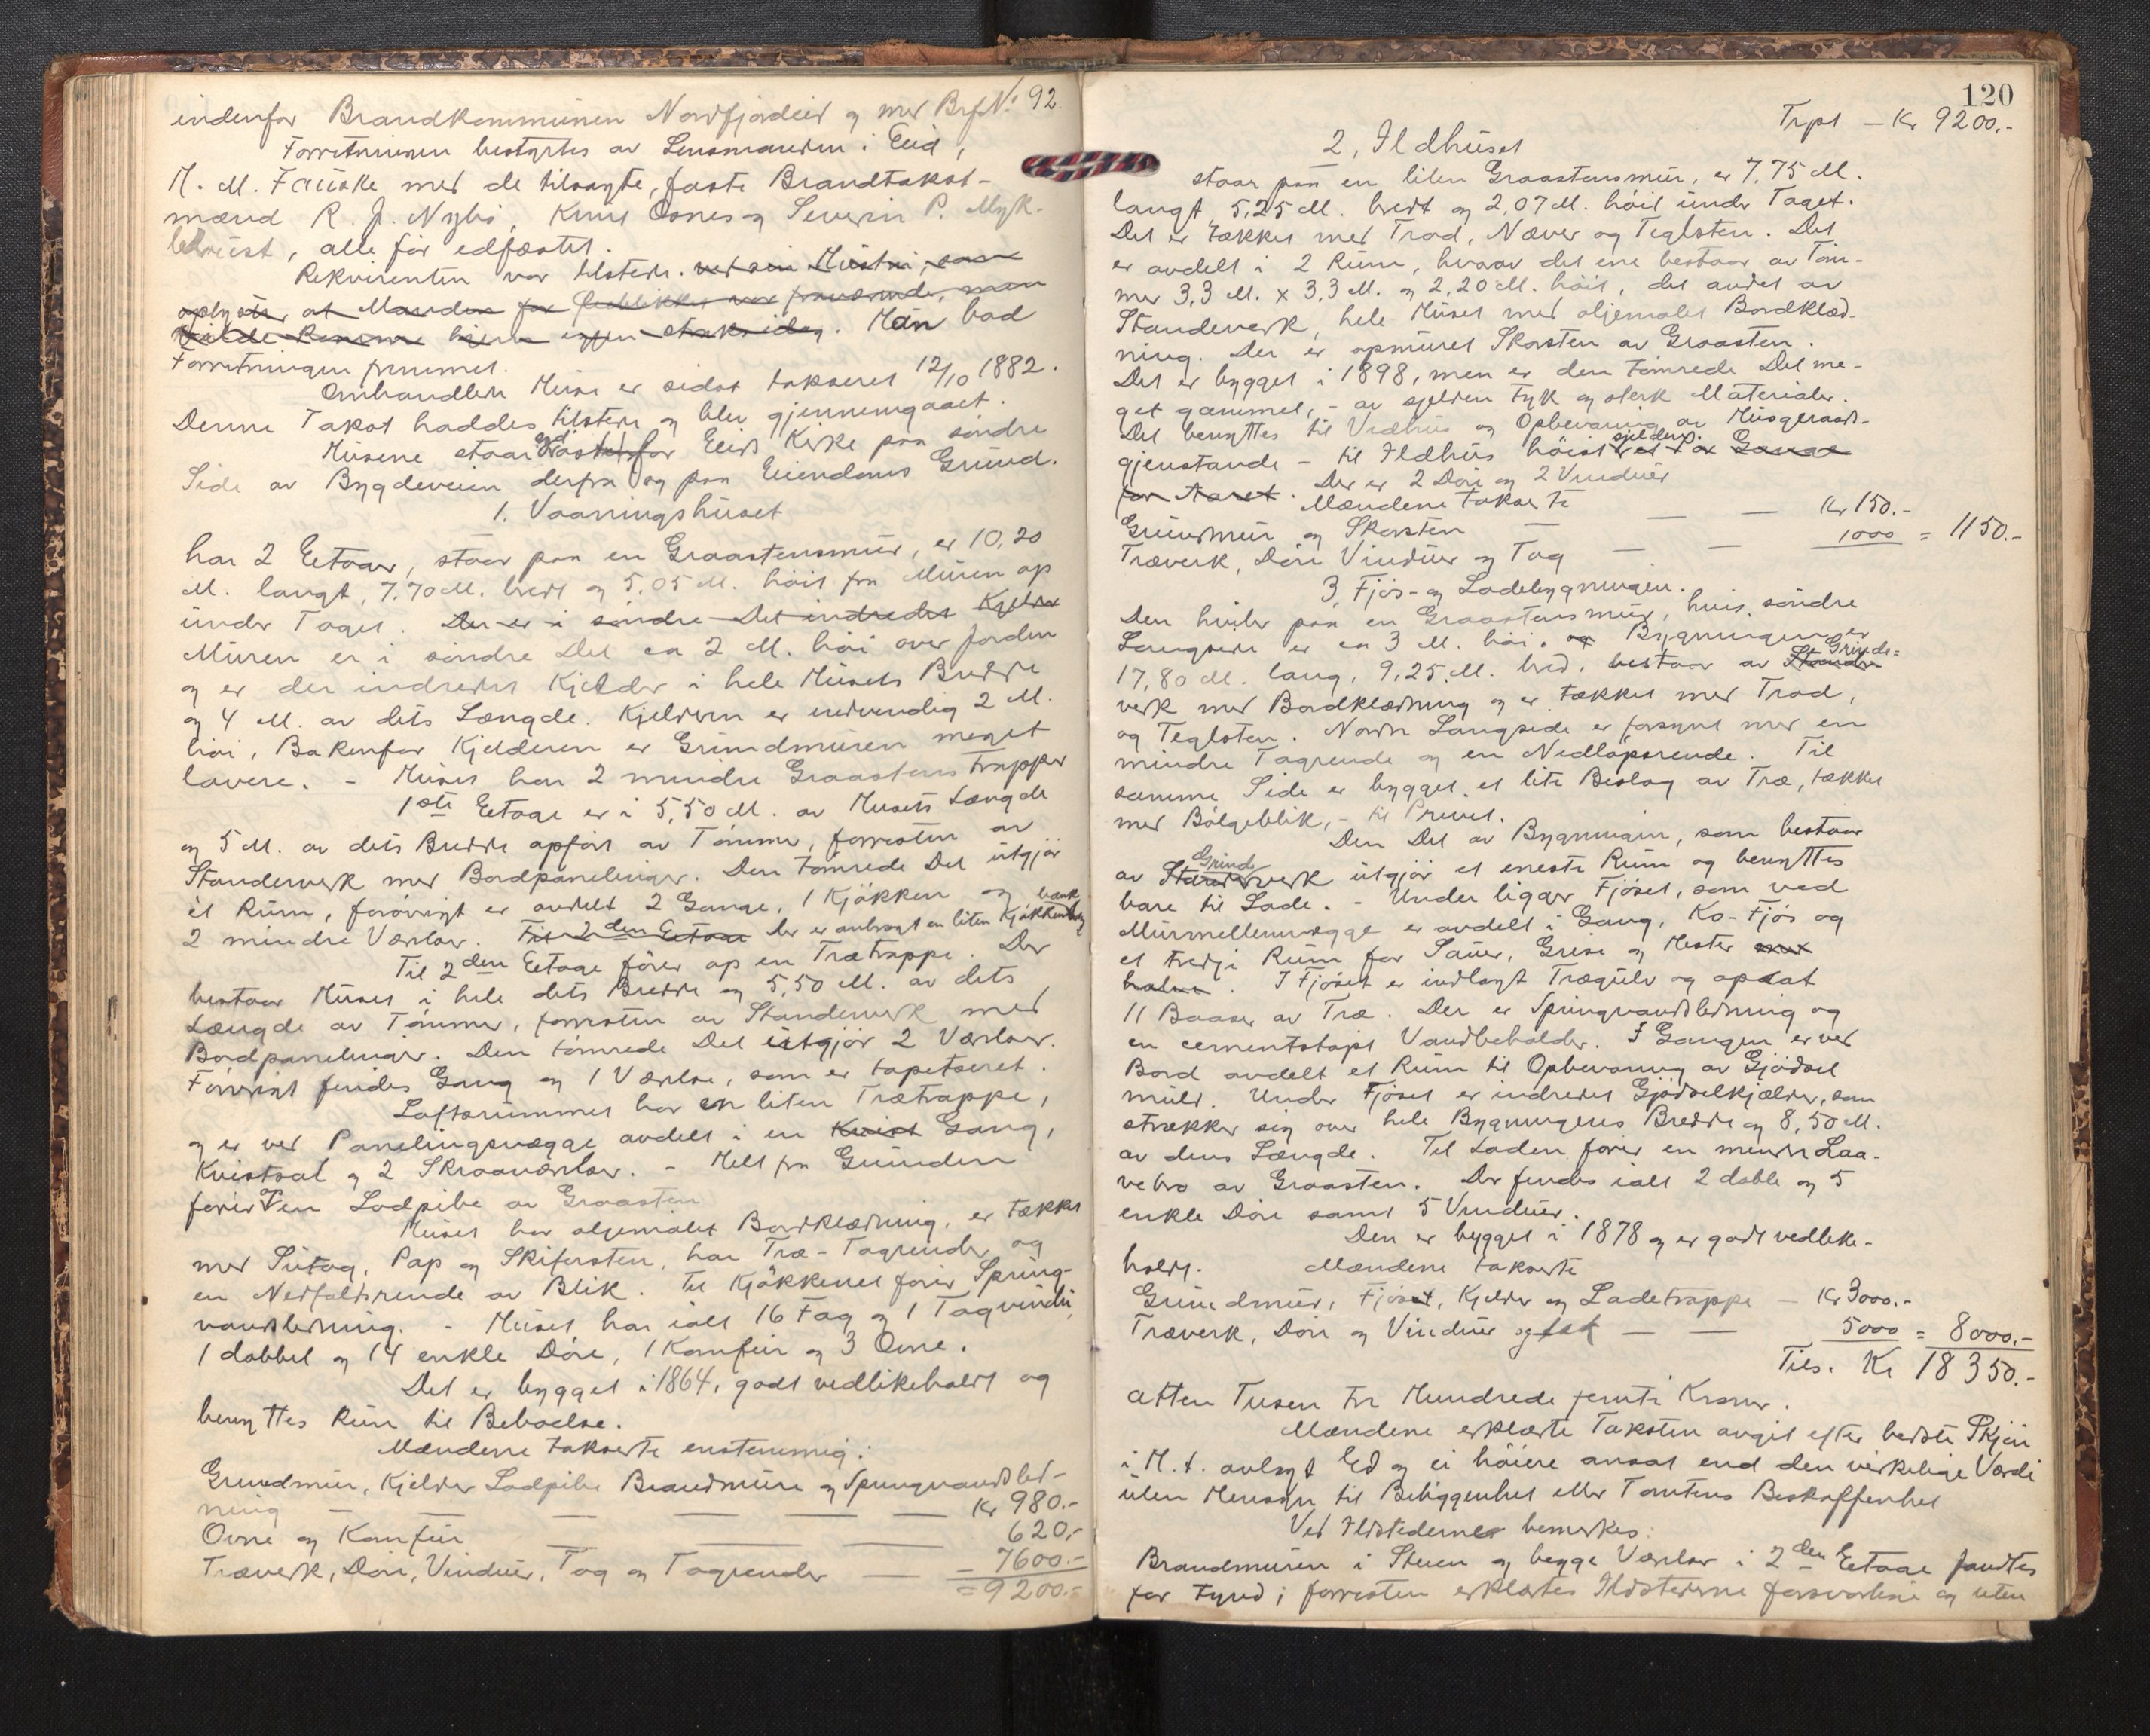 indenfor Brandkommunen Nordfjordeid og med Brf.No 92.
Forretningen bestyrtes av Lensmanden i Eid,
M. Fauske med de tilsagte, faste Brandtakst-
mænd R. J. Nybø, Knut Osnes og Severin P. Myk-
lebust, alle før edfæstet.
Rekvirenten var tilstede. ved sin Hustru, som
oplyste, at Manden for Øieblikket var fraværende, men
vilde komme hjem igjen straks idag. Han bad
Forretningen fremmet.
Omhandlede Huse er sidst takseret 12/10 1882.
Denne Takst haddes tilstede og blev gjennemgaaet.
Husene staar østenfor Eids Kirke paa søndre
Side av Bygdeveien derfra og paa Eiendoms Grund.
1. Vaaningshuset
har 2 Eetager, staar paa en Graastensmur, er 10,20
M. langt, 7,70 M. bredt og 5,05 M. høit fra Muren op
under Taget. Der er i søndre Del indredet Kjelder
Muren er i søndre Del ca 2 M. høi over Jorden
og er der indredet Kjelder i hele Husets Bredde
og 4 M. av dets Længde. Kjelderen er indvendig 2 M.
høi, Bakenfor Kjelderen er Grundmuren meget
lavere. - Huset har 2 mindre Graastens Trapper
1ste Eetage er i 5,50 M. av Husets Længde
og 5 M. av dets Bredde opført av Tømmer, forresten av
Standerverk med Bordpanelinger. Den tømrede Del utgjør
et Rum, forøvrigt er avdelt 2 Gange, 1 Kjøkken og
2 mindre Værelser. Til 2den Eetage der er anbragt en liten Kjøkkenbænk
Til 2den Eetage fører op en Trætrappe. Der
bestaar Huset i hele dets Bredde og 5,50 M. av dets
Længde av Tømmer, forresten av Standerverk med
Bordpanelinger. Den tømrede Del utgjør 2 Værelser.
Forøvrigt findes Gang og 1 Værelse, som er tapetseret.
Loftsrummet har en liten Trætrappe,
og er ved Panelingsvægge avdelt i en Kvist Gang,
Kvistsal og 2 Skraaværelser. - Helt fra Grunden
fører op en Lodpibe av Graasten
Huset har oljemalet Bordklædning, er tækket
med Sutag, Pap og Skifersten, har Træ-Tagrender og
en Nedfaldsrende av Blik. Til Kjøkkenet fører Spring-
vandsledning. - Huset har ialt 16 Fag og 1 Tagvindu,
1 dobbel og 14 enkle Døre, 1 Komfur og 3 Ovne.
Det er bygget i 1864, godt vedlikeholdt og
benyttes kun til Beboelse.
Mændene takserte enstemmig:
Grundmur, Kjelder Lodpibe Brandmure og Springvandsled-
ning — — — — — Kr 980.-
Ovne og Komfur — — 620.-
Træverk, Døre, Vinduer, Tag og Tagrender — - 7600.-
= 9200.-
120
Trpt — Kr 9200.-
2, Ildhuset
staar paa en liten Graastensmur, er 7,75 M.
langt, 5,25 M. bredt og 2,07 M. høit under Taget.
Det er tækket med Trod, Næver og Teglsten. Det
er avdelt i 2 Rum, hvorav det ene bestaar av Tøm-
mer 3,3 M. x 3,3 M. og 2,20 M. høit, det andet av
Standerverk, hele Huset med oljemalet Bordklæd-
ning. Der er opmuret Skorsten av Graasten.
Det er bygget i 1898, men er den tømrede Del me-
get gammel, - av sjelden tyk og sterk Materialer.
Det benyttes til Vedhus og Opbevaring av Husgeraads-
gjenstande - til Ildhus høist sjelden. et Par Gange
for Aaret. Der er 2 Døre og 2 Vinduer
Mændene takserte
Grundmur og Skorsten — — — Kr 150.-
Træverk, Døre Vinduer og Tag — — 1000 = 1150.-
3, Fjøs- og Ladebygningen.
Den hviler paa en Graastensmur, hvis søndre
Langside er ca 3 M. høi. og Bygningen er
17,80 M. lang, 9,25 M. bred, bestaar av Stander Grinde-
verk med Bordklædning og er tækket med Trod,
og Teglsten. Nordre Langside er forsynt med en
mindre Tagrende og en Nedløpsrende. Til
samme Side er bygget et lite Beslag av Træ, tækket
med Bølgeblik, - til Privet.
Den Del av Bygningen, som bestaar
av Stander Grinde verk utgjør et eneste Rum og benyttes
bare til Lade. - Under ligger Fjøset, som ved
Murmellemvægge er avdelt i Gang, Ko-Fjøs og
et tredje Rum for Sauer, Grise og Hester
. I Fjøset er indlagt Trægulv og opsat
11 Baaser av Træ. Der er Springvandsledning og
en cementstøpt Vandbeholder. I Gangen er ved
Bord avdelt et Rum til Opbevaring av Gjødsel
muld. Under Fjøset er indredet Gjødselkjælder, som
strækker sig over hele Bygningens Bredde og 8,50 M.
av dens Længde. Til Laden fører en mindre Laa-
vebro av Graasten. Der findes ialt 2 doble og 5
enkle Døre samt 5 Vinduer.
Den er bygget i 1878 og er godt vedlike-
holdt. Mændene takserte
Grundmur, Fjøset, Kjelder og Ladetrappe — Kr 3000.-
Træverk, Døre og Vinduer og tak — — 5000 = 8000.-
Tils. Kr 18350.-
atten Tusen tre Hundrede femti Kroner.
Mændene erklærte Taksten avgit efter bedste Skjøn
i H. t. avlagt Ed og ei høiere ansat end den virkelige Værdi
uten Hensyn til Beliggenhet eller Tomtens Beskaffenhet
Ved Ildstederne bemerkes:
Brandmuren i Stuen og begge Værelser i 2den Eetage fandtes
for tynd; forresten erklærtes Ildstederne forsvarlige og uten